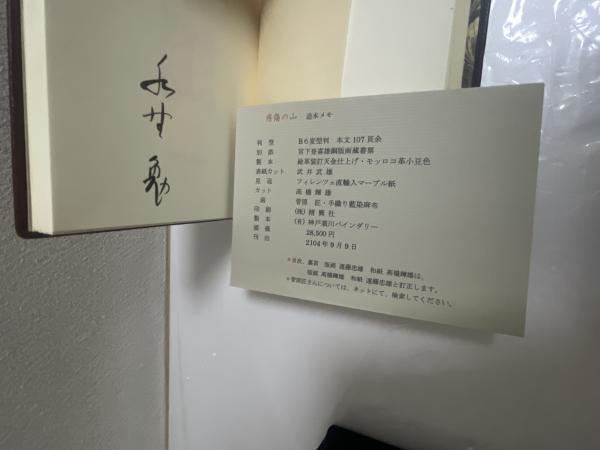 感傷の山　造本メモ
判　型　B6変型判　本文107頁余
別　添　宮下登喜雄銅版画蔵書票
製　本　総革装訂天金仕上げ・モロッコ革小豆色
表紙カット　武井武雄
見　返　フィレンツェ直輸入マーブル紙
カット　高橋輝雄
函　菅原　匠・手織り藍染麻布
印　刷　㈱精興社
製　本　(有)神戸須川バインダリー
頒　価　28,500円
刊　行　2104年9月9日
＊目次、裏頁　版画 遠藤忠雄　和紙 高橋輝雄は、
版画 高橋輝雄　和紙 遠藤忠雄と訂正します。
＊菅原匠さんについては、ネットにて、検索してください。